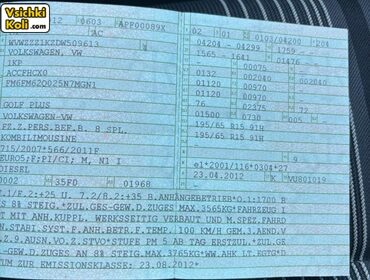 Vsichki
Koli.com
12 0603 APP00089X
AC
WVWZZZ1KZDW509613
VOLKSWAGEN, VW
1KP
ACCFHCX0
FM6FM62Q025N7MGN1
GOLF PLUS
VOLKSWAGEN-VW
FZ.Z.PERS.BEF.B. 8 SPL.
KOMBILIMOUSINE
715/2007*566/2011F
EURO5;F;PI/CI; M, N1 I
DIESEL
0002 35F0 01968
02 01 0103/04200 204
04204 - 04299 1759 -
1565 - 1641 01476
00075
0132 00970 002040
0132 00970 002040
01120 01020
01120 01020
76 02375 72
01500 0730 005
195/65 R15 91H
195/65 R15 91H
9
e1*2001/116*0304*27
23.04.2012 K VU801019
I./F.2/:+25 U. 7.2/8.2:+35 B.ANHÄNGEBETRIEB*O.1:1700 B
IS 8% STEIG.*ZUL.GES-GEW.D.ZUGES MAX.3565KG*FAHRZEUG I
T MIT ANH.KUPPL. WERKSSEITIG VERBAUT UND M.SPEZ.FAHRD
N.STABI.SYST.F.ANH.BETR.F.TEMP. 100 KM/H GEM.3.AEND.V
Z.9.AUSN.VO.Z.STVO*STUFE PM 5 AB TAG ERSTZUL.*ZUL.GE
-GEW.D.ZUGES AN 8% STEIG.MAX.3765KG*WW.AHK LT.EGTG*D
TUM ZUR EMISSIONSKLASSE: 23.08.2012*